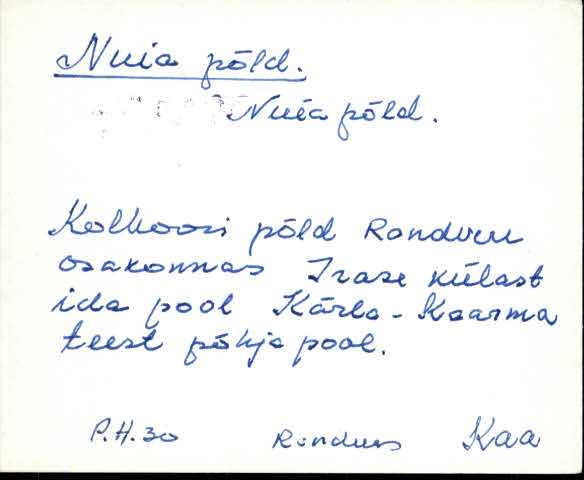 Nuia põld.
Nuia põld.
Kolkoosi põld Randveru
osakonnas Irase külast
ida pool Kärla - Kaarma
teest põhja pool.
P.H.30 Randvere Kaa